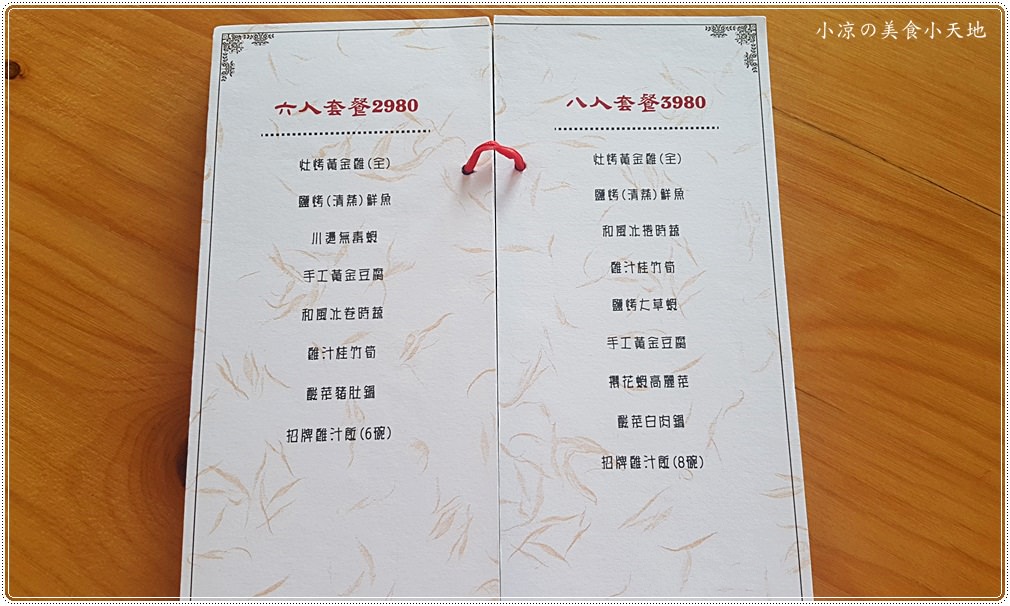 小凉の美食小天地
六人套餐2980
灶烤黃金雞(全)
鹽烤(清蒸)鮮魚
川燙無毒蝦
手工黃金豆腐
和風冰卷時蔬
雞汁桂竹筍
酸菜豬肚鍋
招牌雞汁飯(6碗)
八人套餐3980
灶烤黃金雞(全)
鹽烤(清蒸)鮮魚
和風冰捲時蔬
雞汁桂竹筍
鹽烤大草蝦
手工黃金豆腐
櫻花蝦高麗菜
酸菜白肉鍋
招牌雞汁飯(8碗)